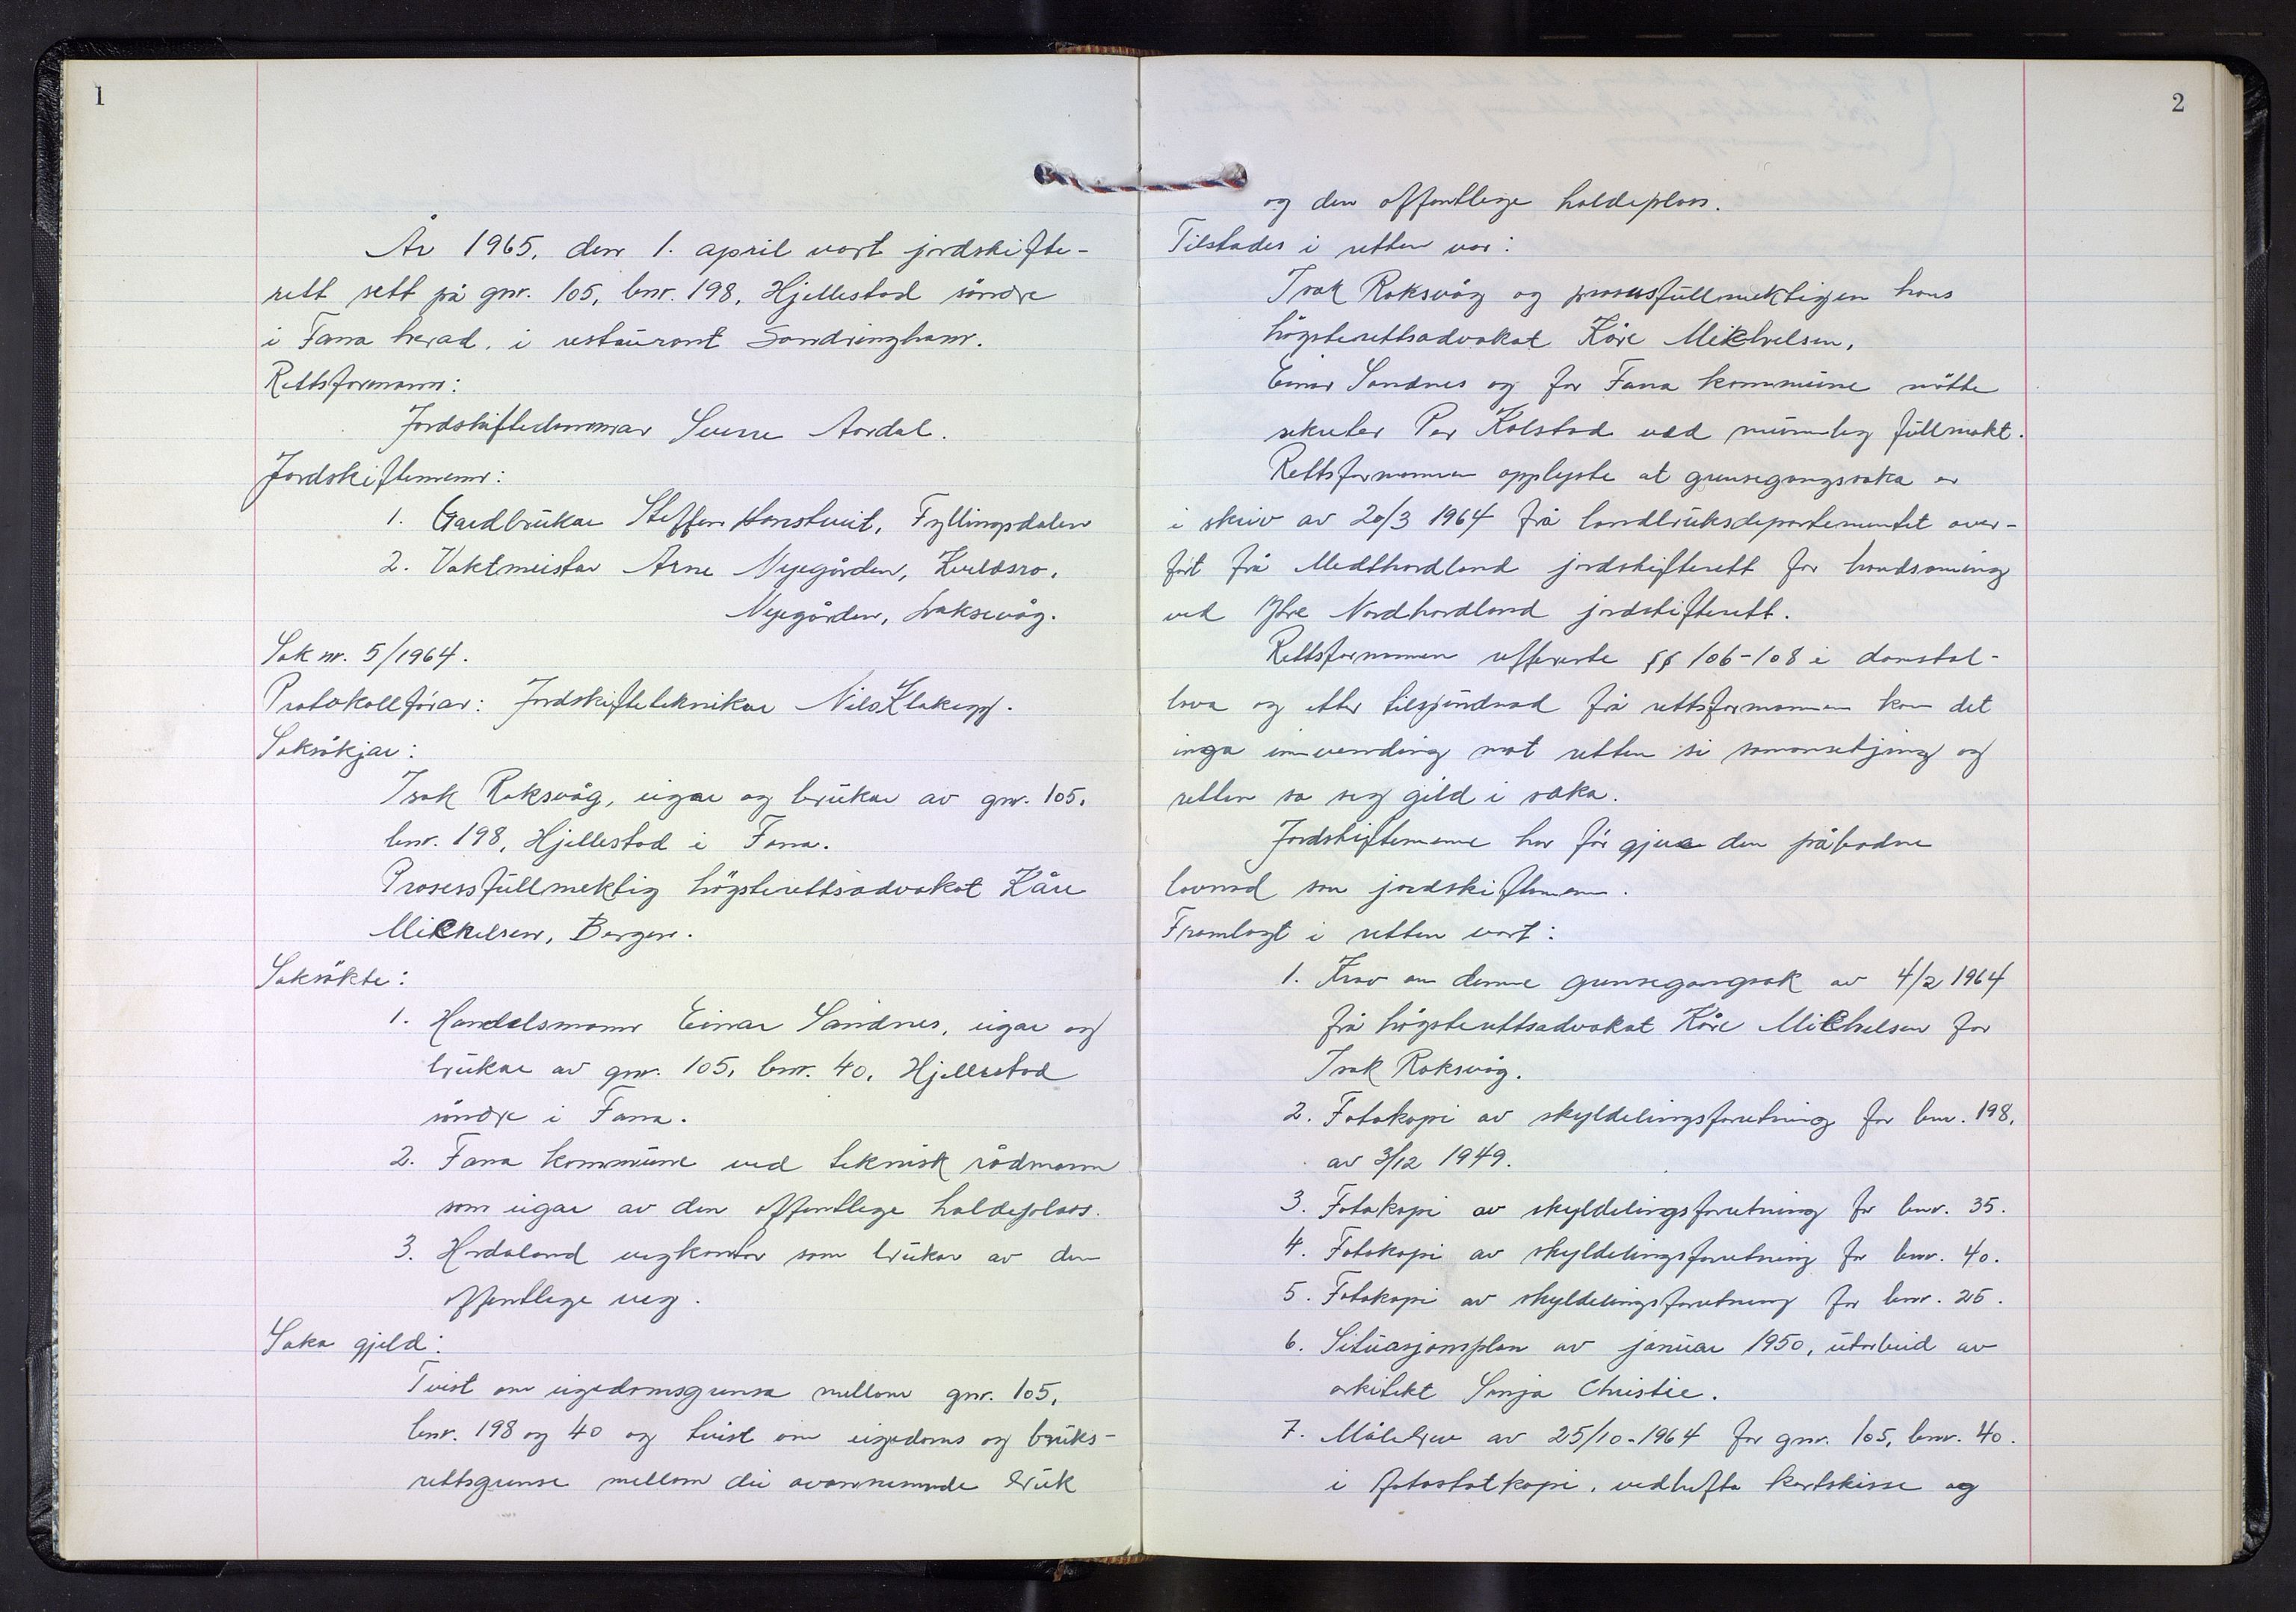 1
År 1965, den 1. april vart jordskifte-
rett sett på gnr. 105, bnr. 198, Hjellestad söndre
i Fana herad, i restaurant Sandringham.
Rettsformann:
Jordskiftedommar Sverre Aardal.
Jordskiftemenn:
1. Gardbrukar Steffen Hanstveit, Fyllingsdalen
2. Vaktmeister Arne Nygården, Kveldsro,
Nygården, Laksevåg.
Sak nr. 5/1964.
Protokollförar: Jordskifteteknikar Nils Klakegg.
Saksökjar:
Isak Roksvåg, eigar og brukar av gnr. 105,
bnr. 198, Hjellestad i Fana.
Prosessfullmektig högsterettsadvokat Kåre
Mickelsen, Bergen.
Saksökte:
1. Handelsmann Einar Sandnes, eigar og
brukar av gnr. 105, bnr. 40, Hjellestad
söndre i Fana.
2. Fana kommune ved teknisk rådmann
som eigar av den offentlege haldeplass.
3. Hordaland vegkontor som brukar av den
offentlege veg.
Saka gjeld:
Tvist om eigedomsgrensa mellom gnr. 105,
bnr. 198 og 40 og tvist om eigedoms og bruks-
rettsgrense mellom dei ovannemnde bruk
2
og den offentlege haldeplass.
Tilstades i retten var:
Isak Roksvåg og prosessfullmektigen hans
högsterettsadvokat Kåre Mickelsen,
Einar Sandnes og for Fana kommune møtte
sekretær Per Kolstad ved munnleg fullmakt.
Rettsformannen opplyste at grensegangssaka er
i skriv av 20/3 1964 frå landbruksdepartementet over-
fört frå Midthordland jordskifterett for handsaming
ved Ytre Nordhordland jordskifterett.
Rettsformannen refererte §§ 106-108 i domstol-
lova og etter tilspurdnad frå rettsformannen kom det
inga innvending mot retten si samansetjing og
retten sa seg gild i saka.
Jordskiftemennene har för gjeve den påbodne
lovnad som jordskiftemenn.
Framlagt i retten vart:
1. Krav om denne grensegangssak av 4/2 1964
frå högsterettsadvokat Kåre Mickelsen for
Isak Roksvåg.
2. Fotokopi av skyldelingsforretning for bnr. 198,
av 3/12 1949.
3. Fotokopi av skyldelingsforretning for bnr. 35.
4. Fotokopi av skyldelingsforretning for bnr. 40.
5. Fotokopi av skyldelingsforretning for bnr. 25.
6. Situasjonsplan av januar 1950, utarbeid av
arkitekt Sinja Christie.
7. Målebrev av 25/10-1964 for gnr. 105, bnr. 40.
i fotostatkopi, vedhefta kartskisse og